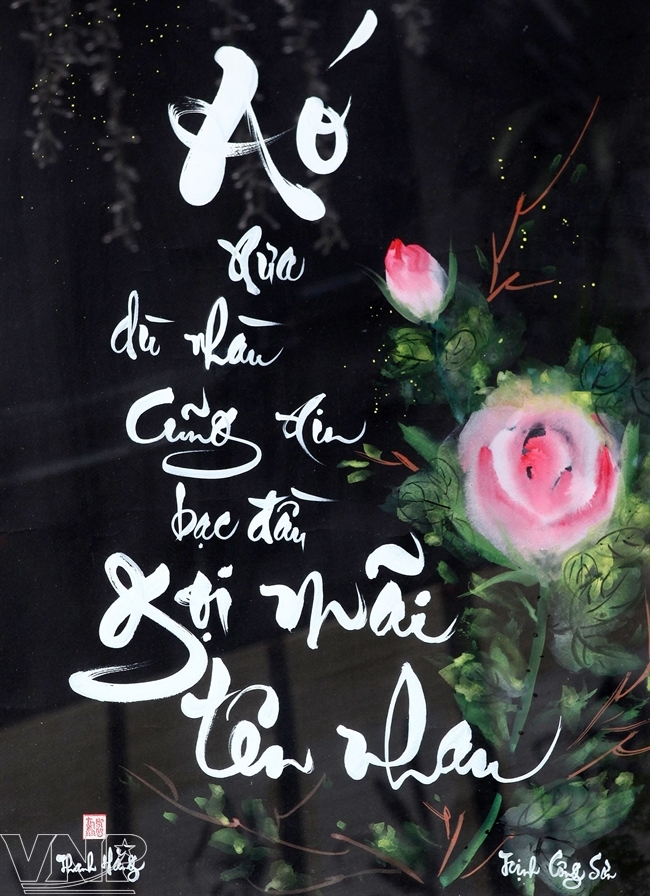 Áo
xưa
dù nhàu
Cũng xin
bạc đầu
gọi mãi
tên nhau
VNP
Thanh Hằng
Trịnh Công Sơn